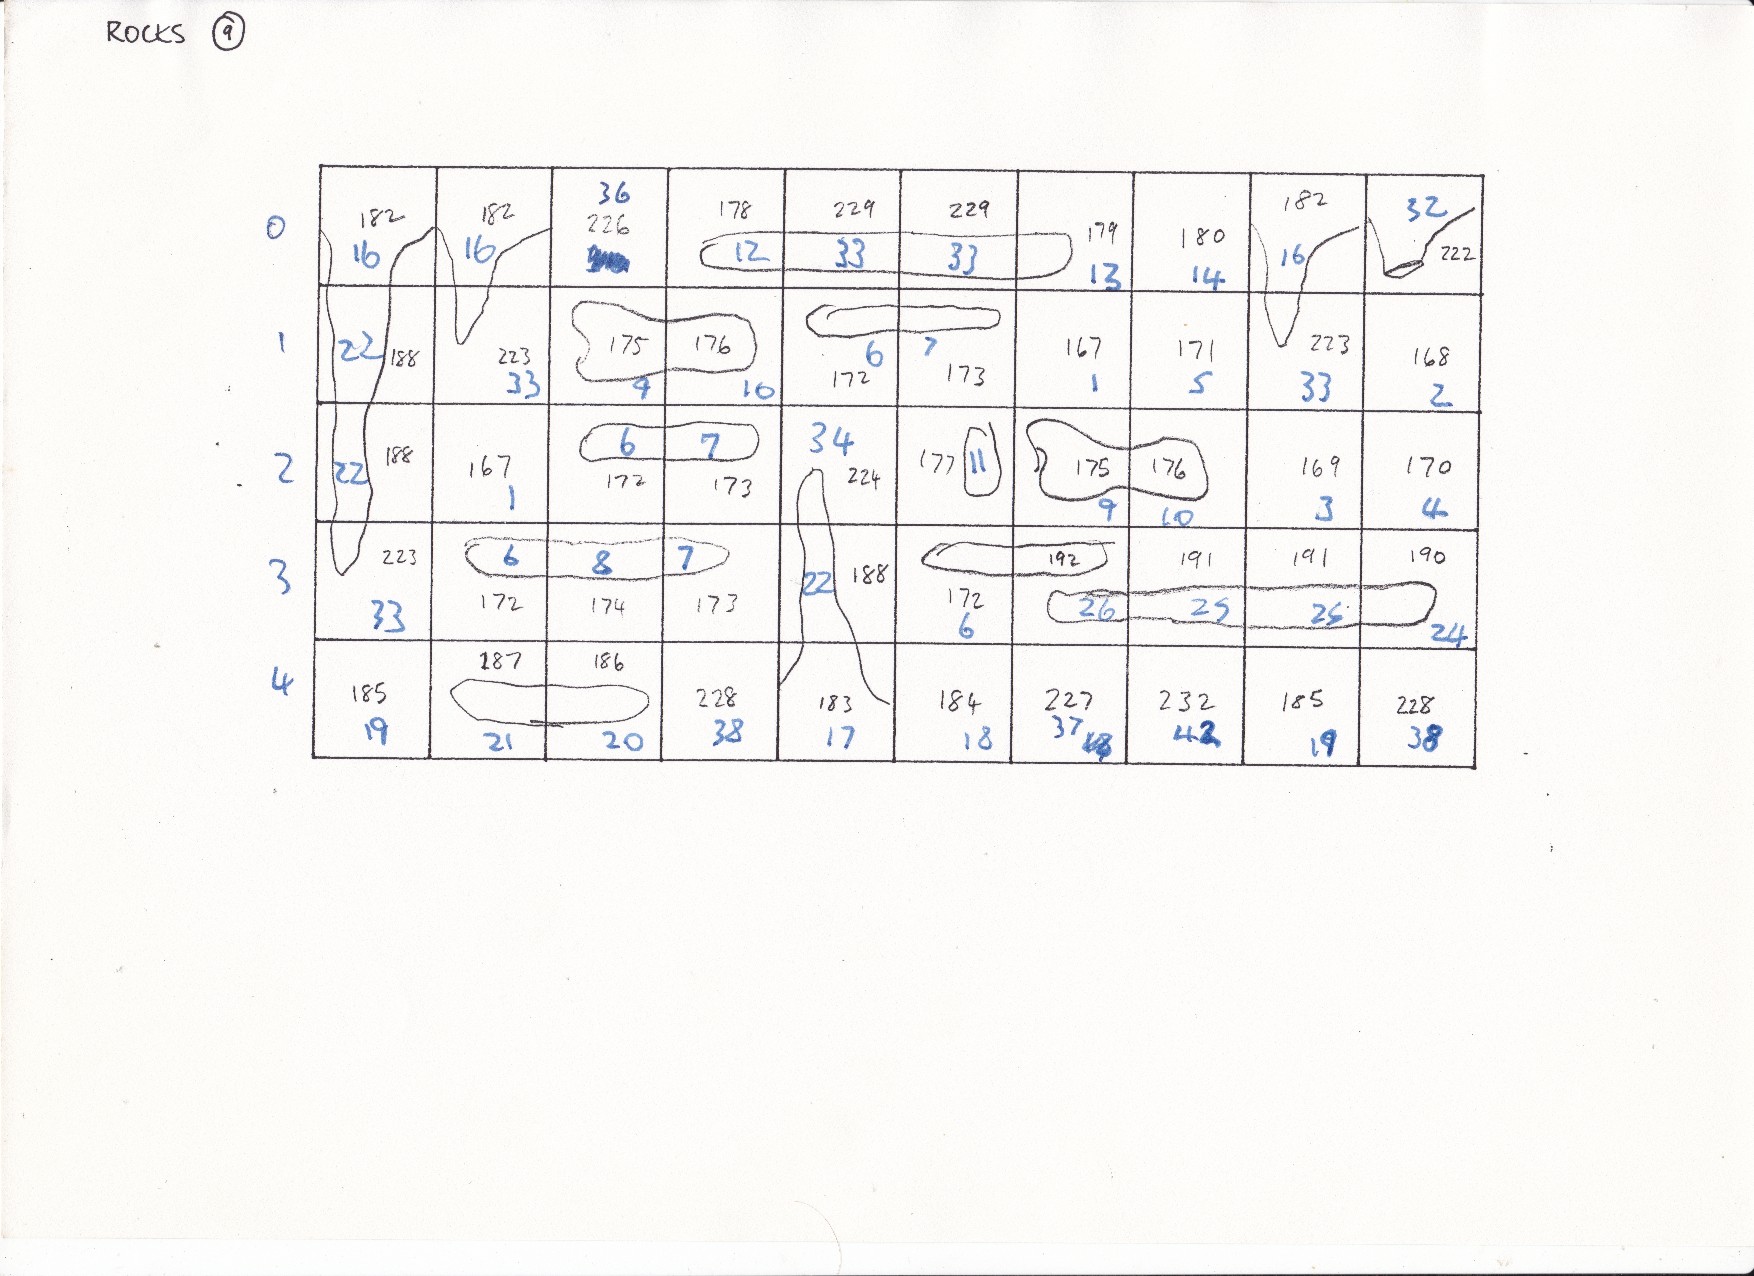 ROCKS 9
36 32
182 182 226 178 229 229 179 180 182 222
0 16 16 12 33 33 13 14 16
22 188 223 175 176 6 7 167 171 223 168
1 33 9 10 172 173 1 5 33 2
188 167 6 7 34 177 11 175 176 169 170
2 22 1 172 173 224 9 10 3 4
223 6 8 7 22 188 192 191 191 190
3 33 172 174 173 172 6 26 25 25 24
187 186
4 185 228 183 184 227 232 185 228
19 21 20 38 17 18 37 42 19 38